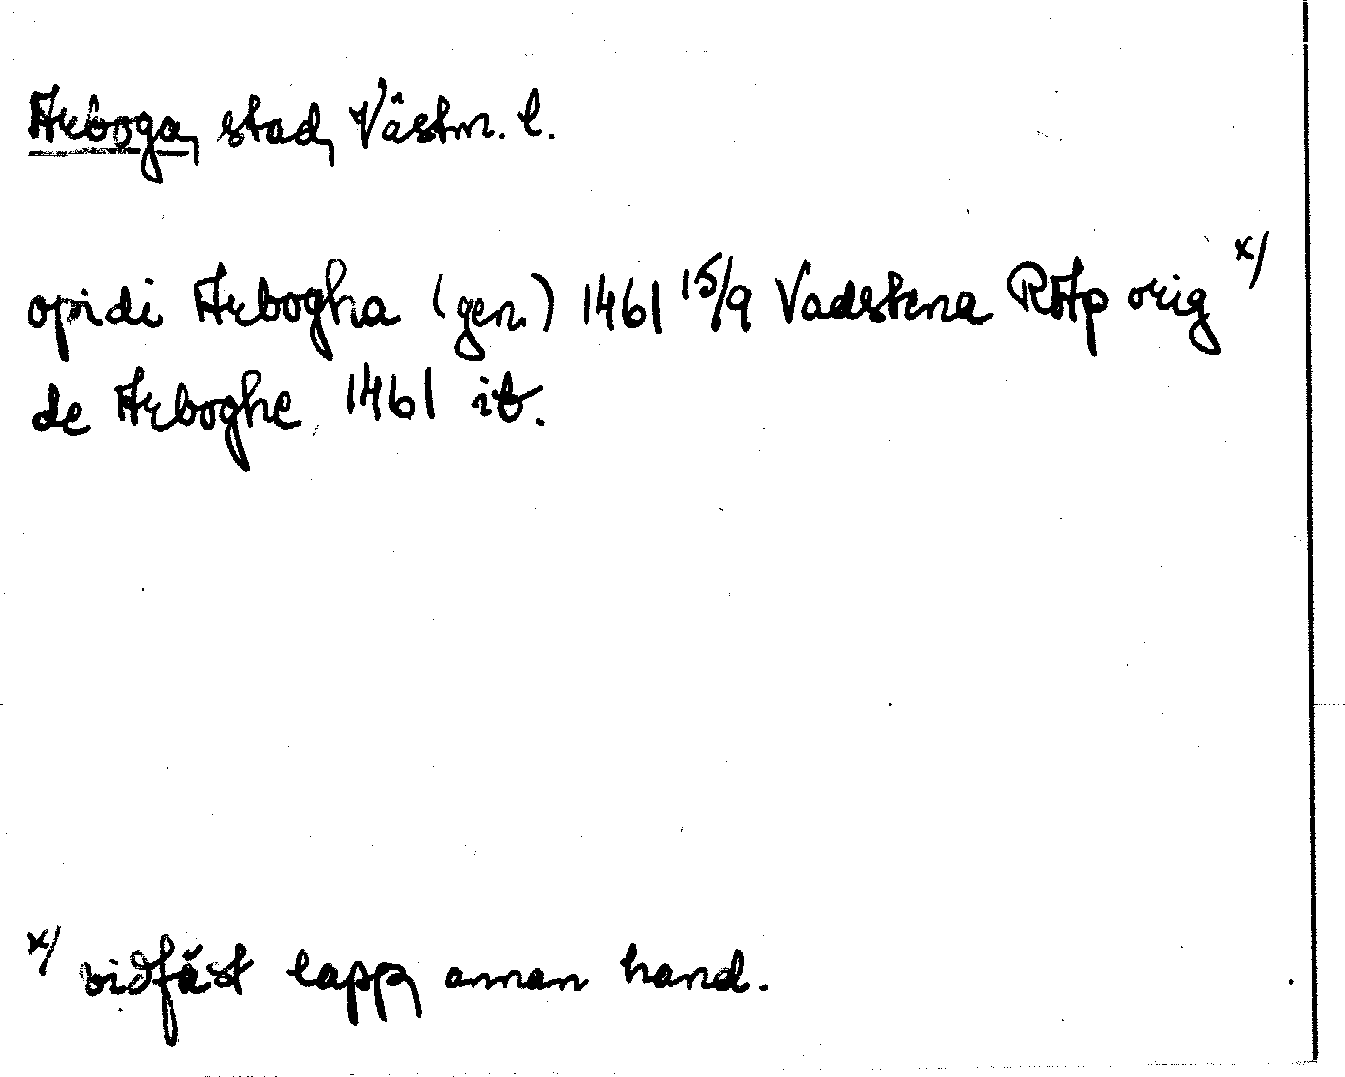 Arboga, stad, Västm. l.
opidi Arbogha (gen.) 1461 15/9 Vadstena RAp orig x/
de Arboghe 1461 ib.
x/ vidfäst lapp, annan hand.